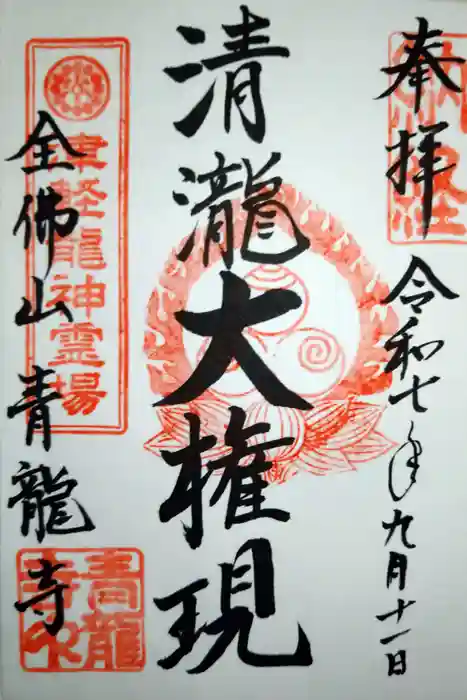 奉拝
令和七年九月十一日
清瀧大権現
津軽龍神霊場
全佛山青龍寺
青龍寺印